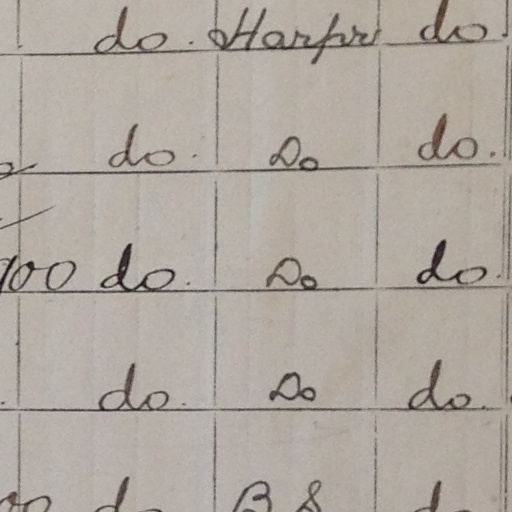 do. Harpur do.
do. Do do.
900 do. Do do.
do. Do do.
do B S do